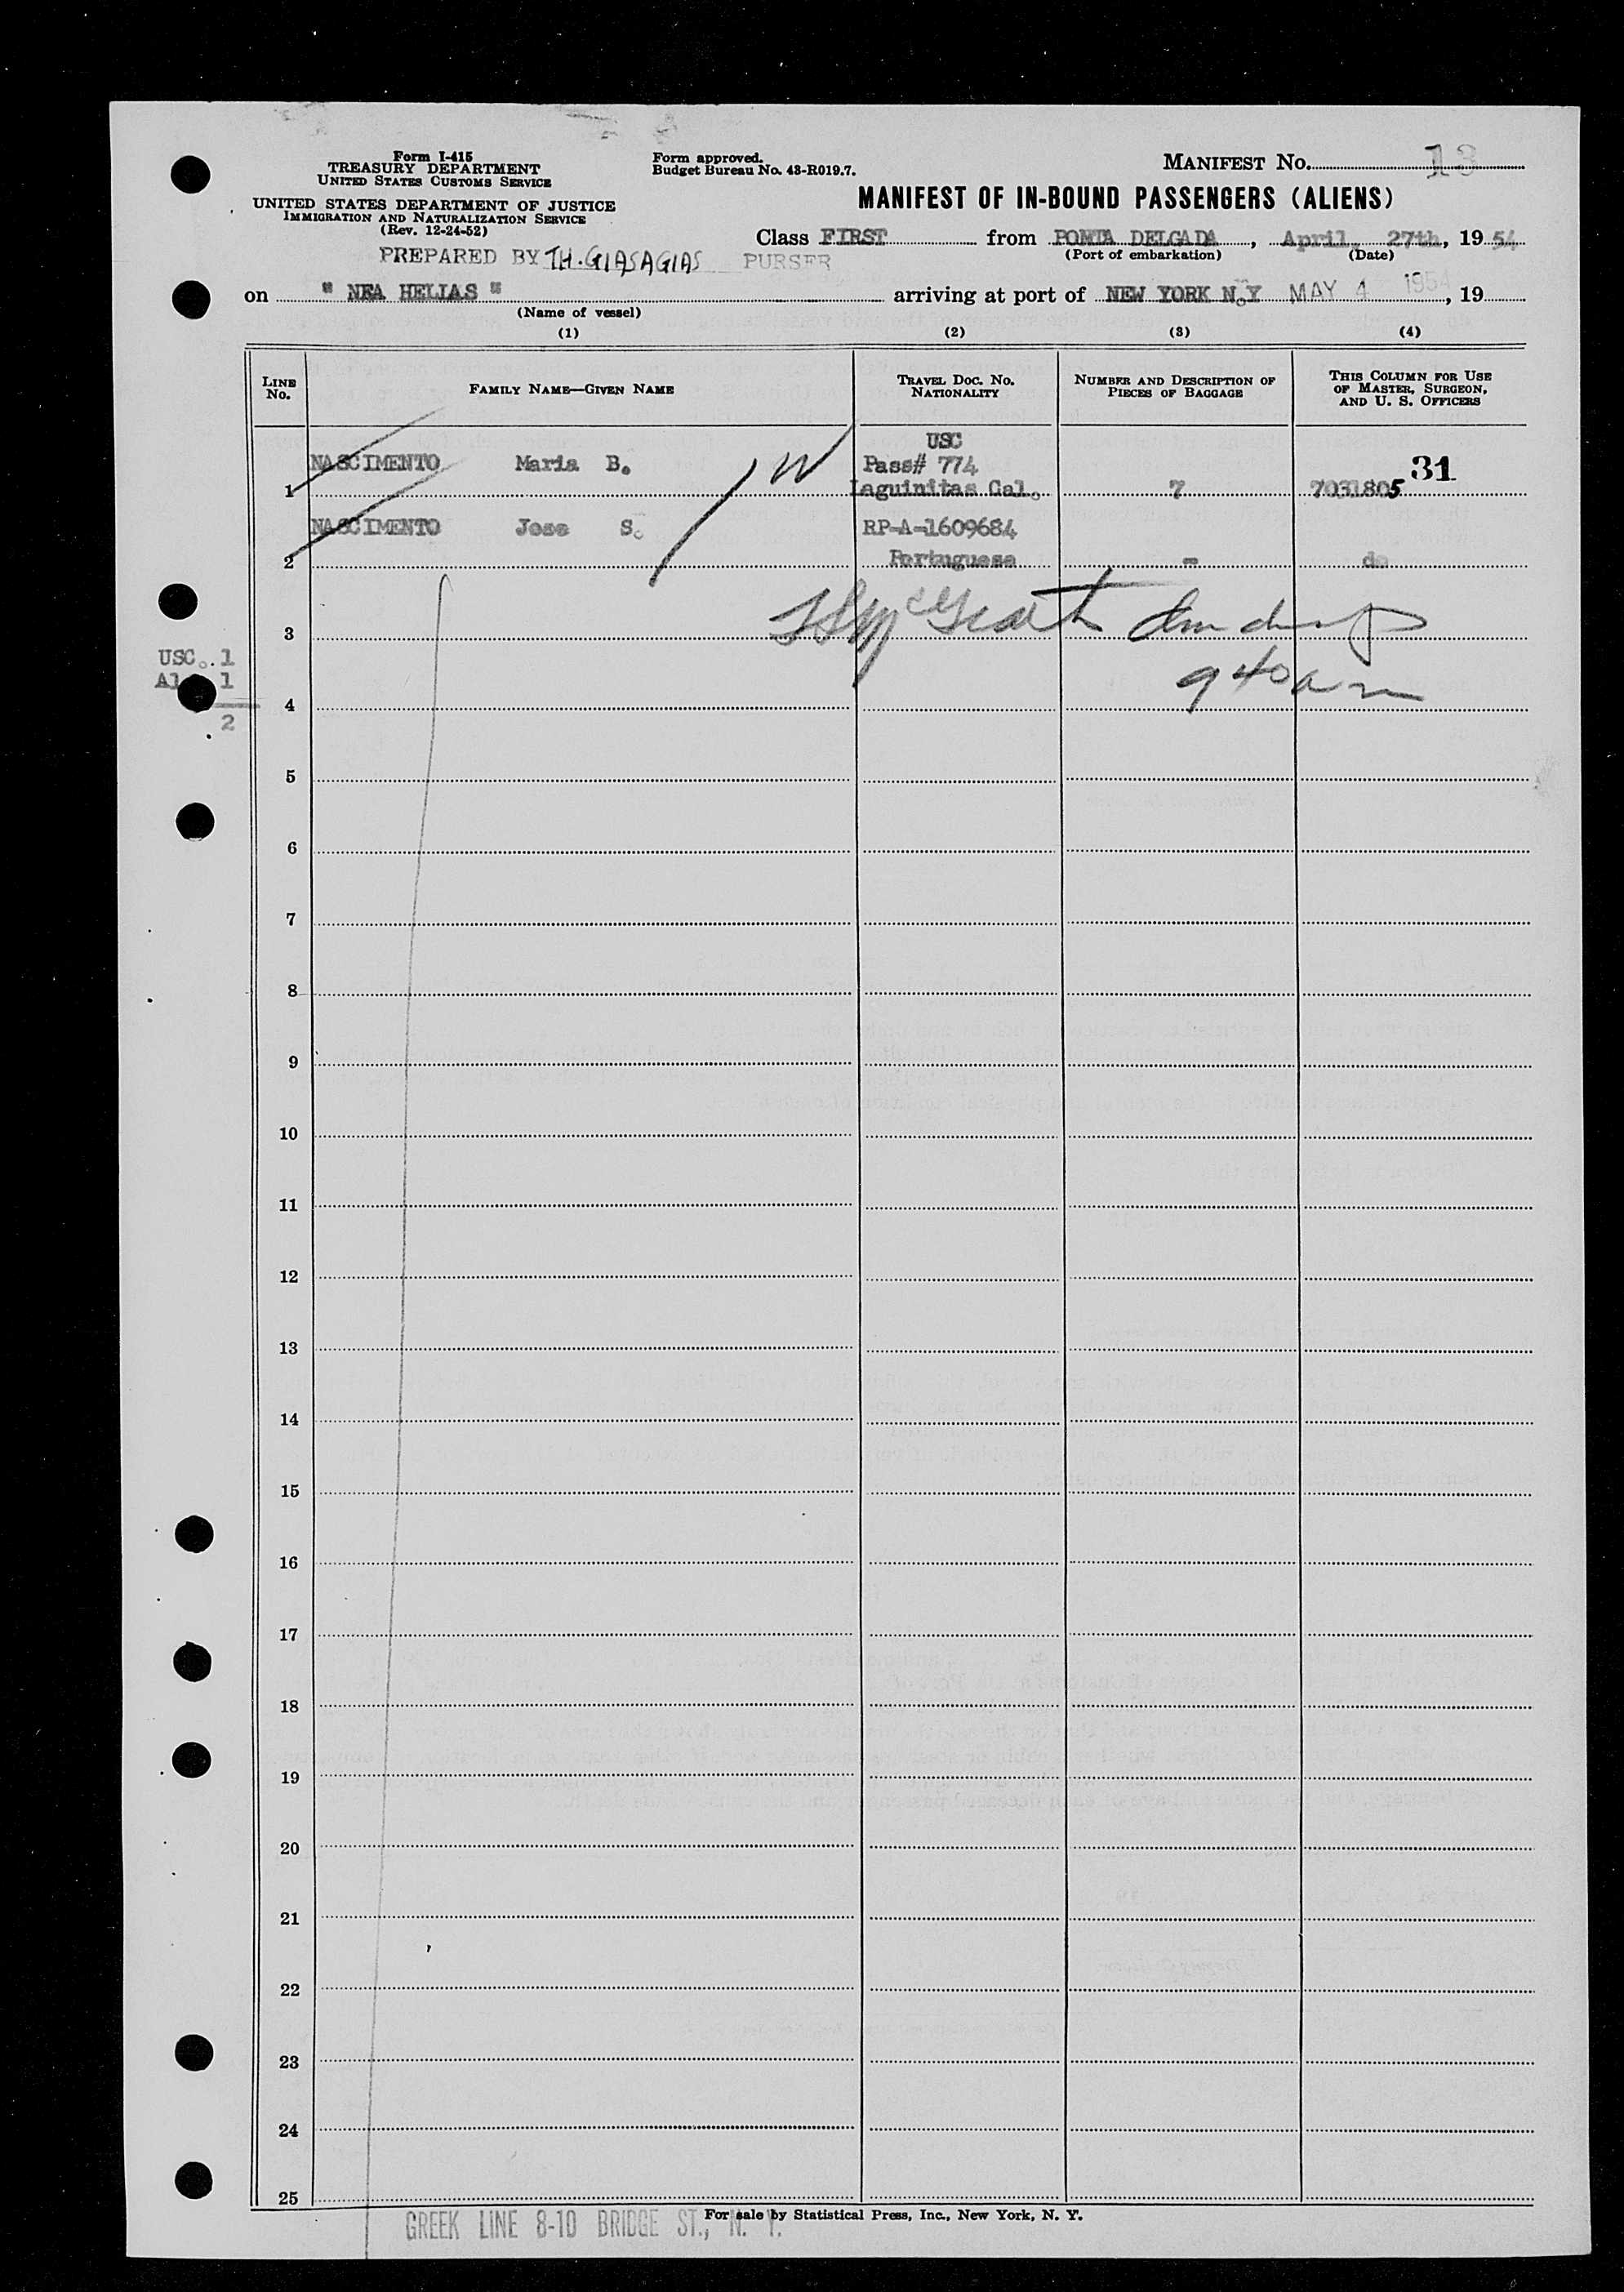 Form I-415
TREASURY DEPARTMENT
UNITED STATES CUSTOMS SERVICE
UNITED STATES DEPARTMENT OF JUSTICE
IMMIGRATION AND NATURALIZATION SERVICE
(Rev. 12-24-52)
Form approved.
Budget Bureau No. 43-R019.7.
MANIFEST No. 13
MANIFEST OF IN-BOUND PASSENGERS (ALIENS)
Class FIRST from PONTA DELGADA, April, 27th, 19 54
(Port of embarkation) (Date)
PREPARED BY TH. GIASAGIAS PURSER
on " NEA HELIAS " arriving at port of NEW YORK N.Y MAY 4 1954, 19
(Name of vessel)
(1) (2) (3) (4)
LINE No. FAMILY NAME—GIVEN NAME TRAVEL DOC. No. NATIONALITY NUMBER AND DESCRIPTION OF PIECES OF BAGGAGE THIS COLUMN FOR USE OF MASTER, SURGEON, AND U. S. OFFICERS
USC
NASCIMENTO Maria B. W Pass# 774 31
1 Laguinitas Cal. 7 7031805
NASCIMENTO Jose S. RP-A-1609684
2 Portuguese - do
3
9 40 am
USC. 1
1
2
4
5
6
7
8
9
10
11
12
13
14
15
16
17
18
19
20
21
22
23
24
25
For sale by Statistical Press, Inc., New York, N. Y.
GREEK LINE 8-10 BRIDGE ST., N. Y.